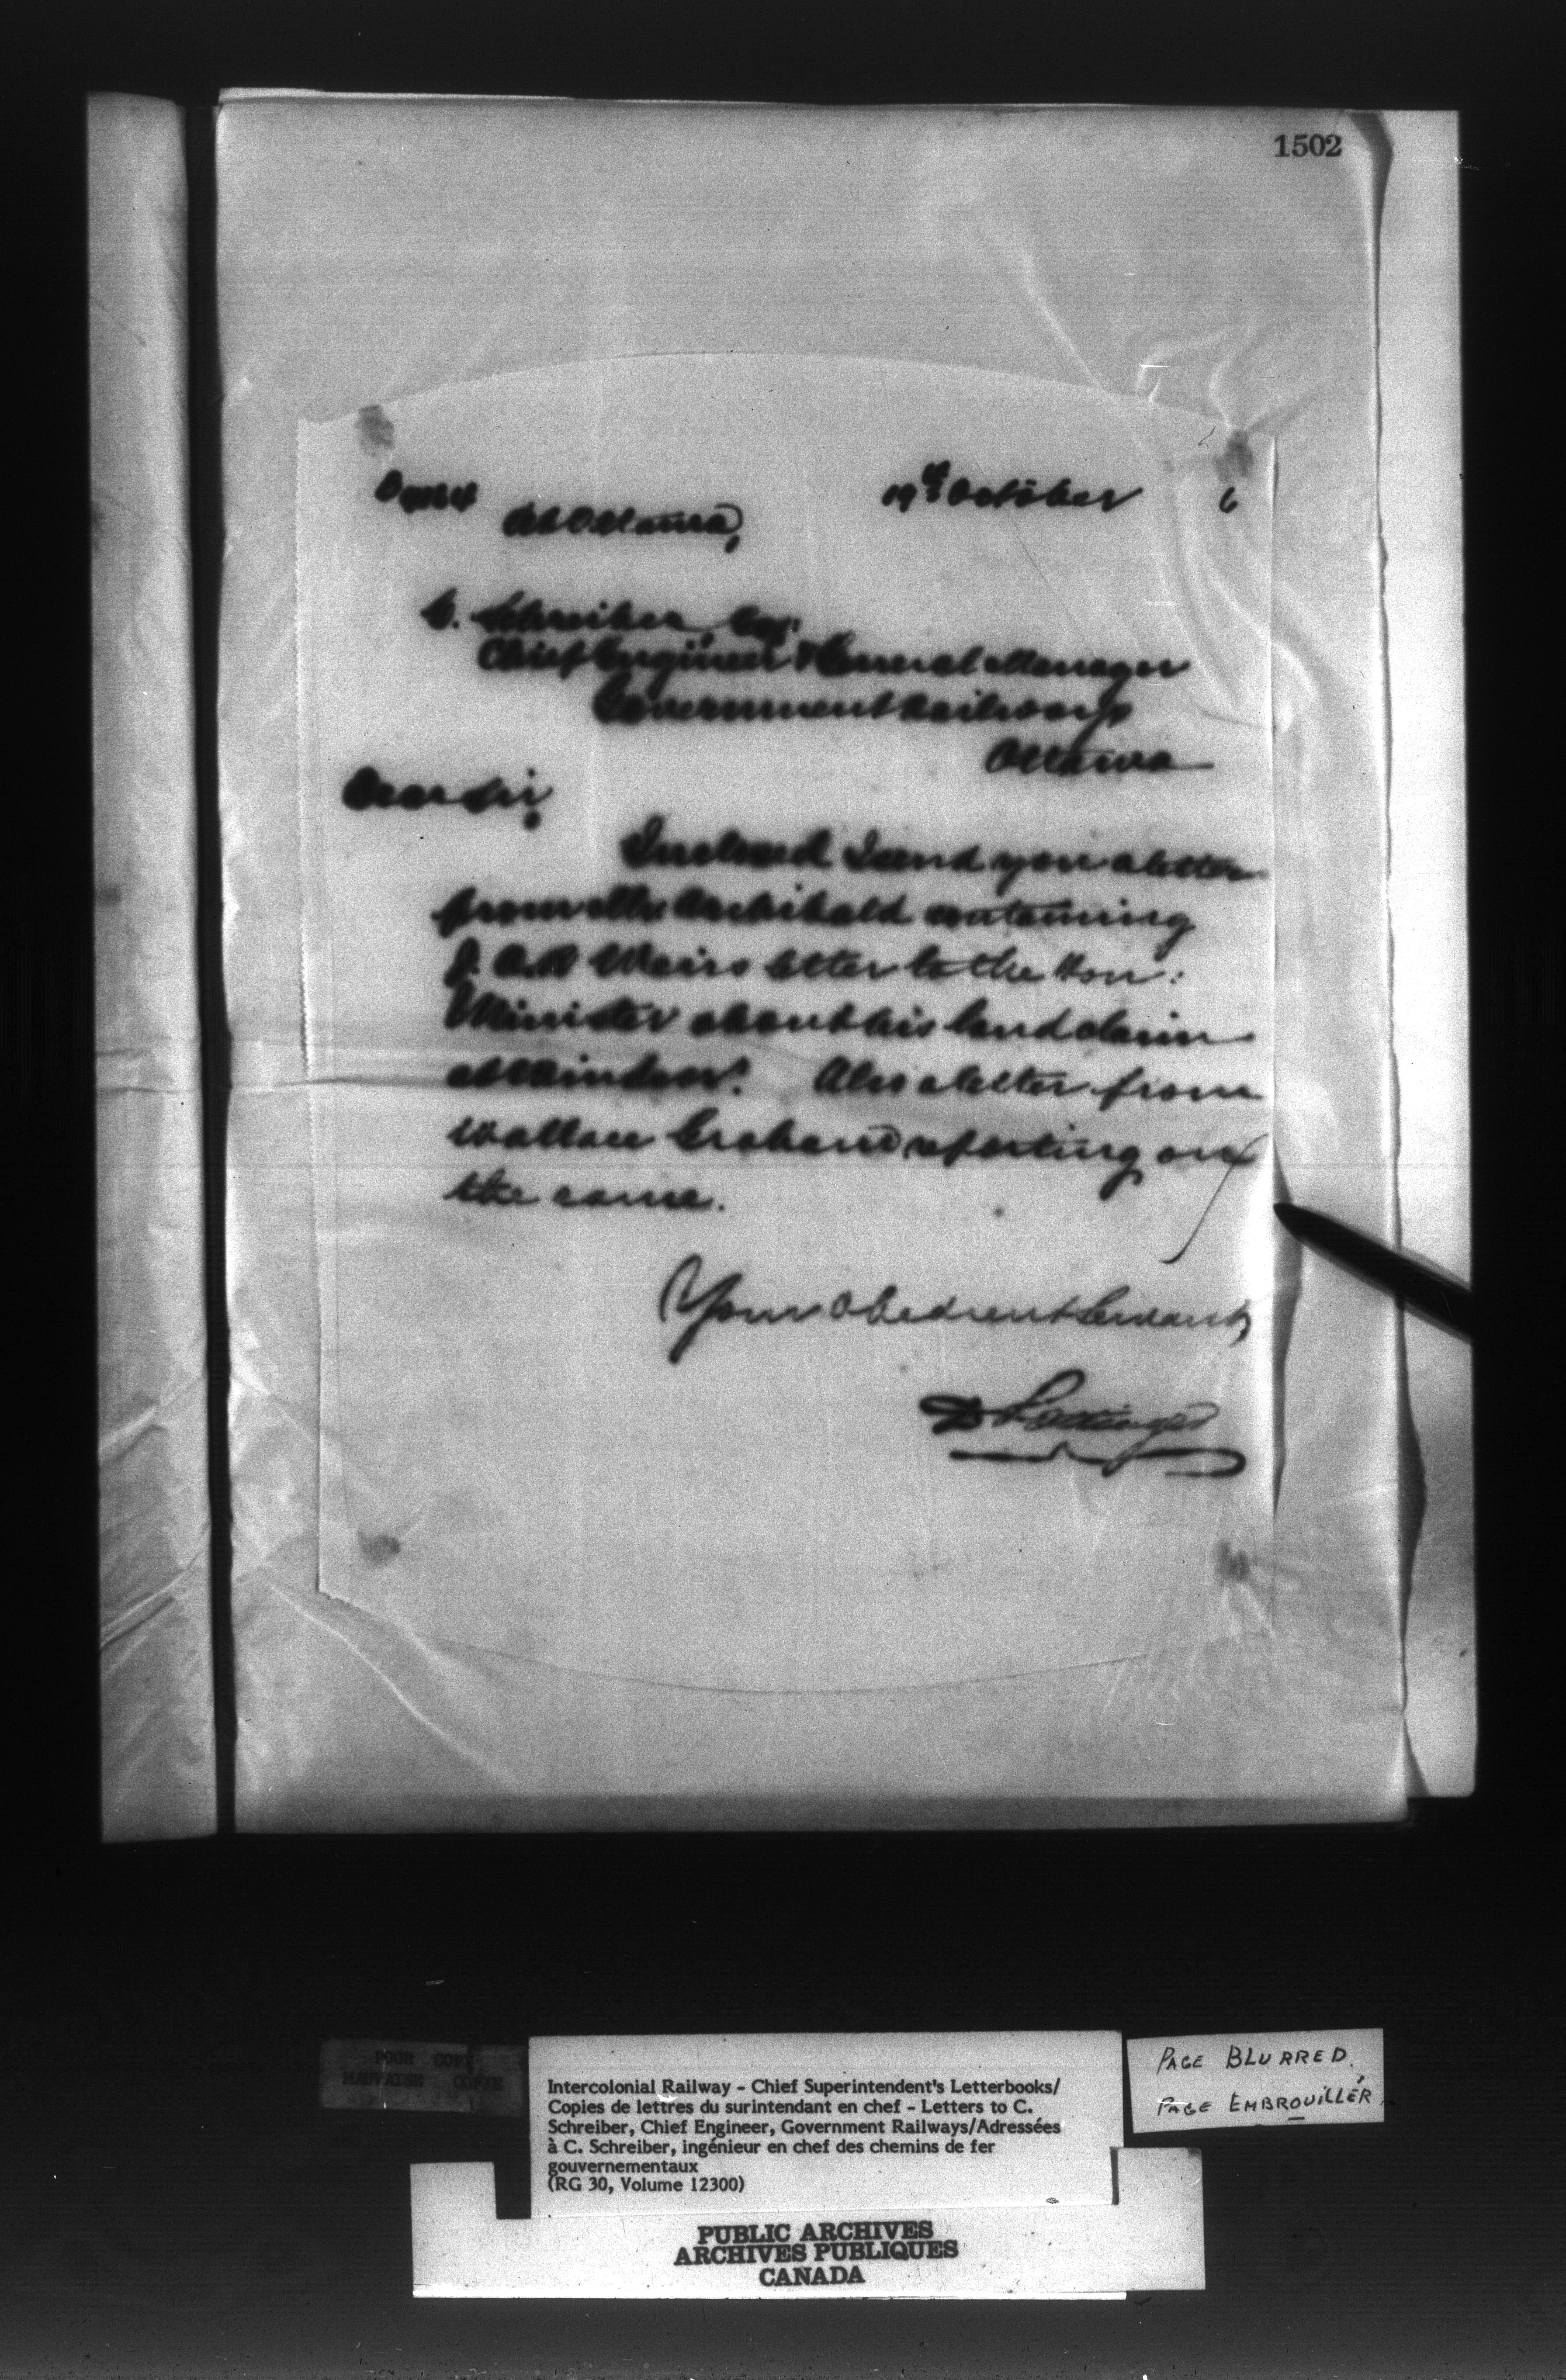 1502
19th October 6
At Ottawa,
C. Schreiber, Esq:
Chief Engineer & General Manager
Government Railways
Ottawa
Dear Sir,
Inclosed I send you a letter
from Mr Archibald containing
J. A. Weirs letter to the Hon:
Minister about his land claim
at Windsor. Also a letter from
Wallace Graham reporting on
the same.
Your Obedient Servant
D Pottinger
POOR COPY
MAUVAISE COPIE
Intercolonial Railway - Chief Superintendent's Letterbooks/
Copies de lettres du surintendant en chef - Letters to C.
Schreiber, Chief Engineer, Government Railways/Adressées
à C. Schreiber, ingénieur en chef des chemins de fer
gouvernementaux
(RG 30, Volume 12300)
PAGE BLURRED.
PAGE EMBROUILLÉR.
PUBLIC ARCHIVES
ARCHIVES PUBLIQUES
CANADA